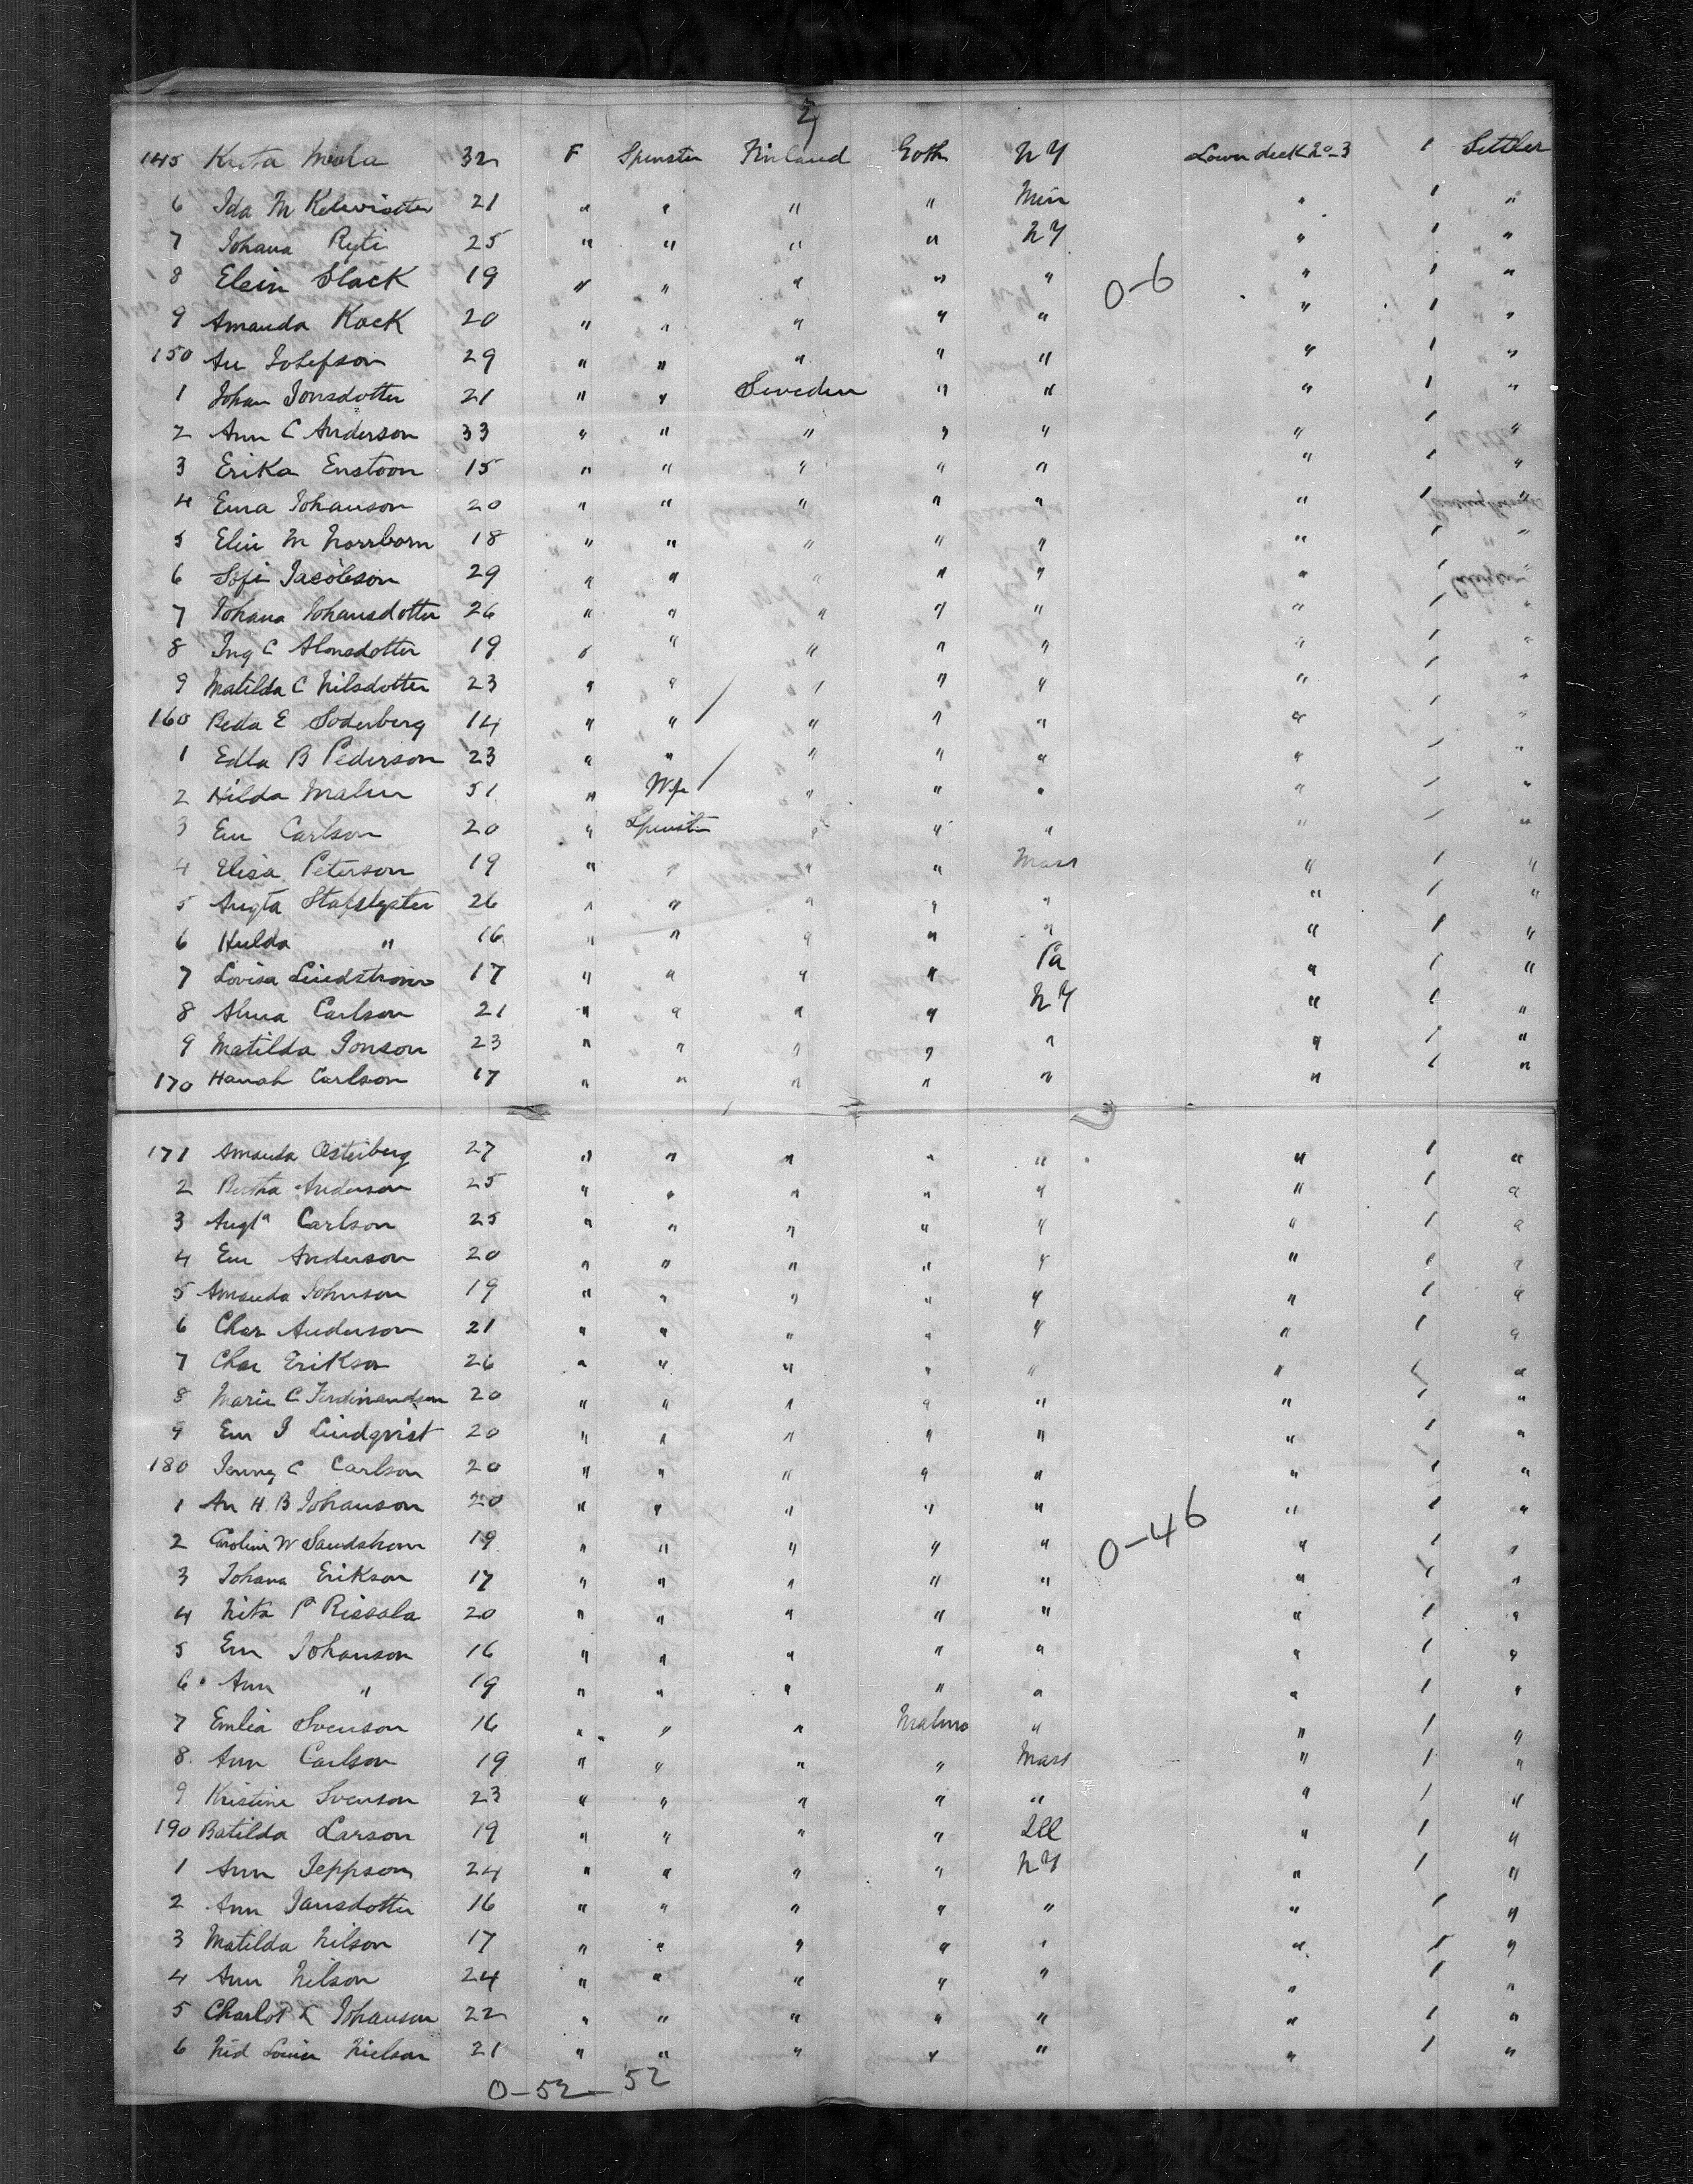 2
145 Kreta Miola 32 F Spinster Finland Goth NY Lower deck No 3 1 Settler
6 Ida M 21 " " " " Min " 1 "
7 Johana Ryti 25 " " " " NY " 1 "
8 Elein Slack 19 " " " " " 0-6 " 1 "
9 Amanda Kack 20 " " " " " " 1 "
150 An Josefson 29 " " " " " " 1 "
1 Johan Jonsdotter 21 " " Sweden " " " 1 "
2 Ann C Anderson 33 " " " " " " 1 "
3 Erika Enstoon 15 " " " " " " 1 "
4 Ema Johanson 20 " " " " " " 1 "
5 Elin M Norrborn 18 " " " " " " 1 "
6 Sofi Jacobson 29 " " " " " " 1 "
7 Johana Johansdotter 26 " " " " " " 1 "
8 Ing C Alonsdotter 19 " " " " " " 1 "
9 Matilda C Nilsdotter 23 " " " " " " 1 "
160 Beda E Soderberg 14 " " " " " " 1 "
1 Edla B Pederson 23 " " " " " " 1 "
2 Hilda Malm 51 " Wife " " " " 1 "
3 Em Carlson 20 " Spinster " " " " 1 "
4 Elisa Peterson 19 " " " " Mass " 1 "
5 Augta 26 " " " " " " 1 "
6 Hulda " 16 " " " " " " 1 "
7 Lovisa Lindstrom 17 " " " " Pa " 1 "
8 Alma Carlson 21 " " " " NY " 1 "
9 Matilda Jonson 23 " " " " " " 1 "
170 Hanah Carlson 17 " " " " " " 1 "
171 Amanda Osterberg 27 " " " " " " 1 "
2 Bertha Anderson 25 " " " " " " 1 "
3 Augta Carlson 25 " " " " " " 1 "
4 Em Anderson 20 " " " " " " 1 "
5 Amanda Johnson 19 " " " " " " 1 "
6 Char Anderson 21 " " " " " " 1 "
7 Char Erikson 26 " " " " " " 1 "
8 Marie C Ferdinandson 20 " " " " " " 1 "
9 Em J Lindqvist 20 " " " " " " 1 "
180 Jenny C Carlson 20 " " " " " " 1 "
1 An H. B Johanson 20 " " " " " " 1 "
2 Carolina W Sandstrom 19 " " " " " 0-46 " 1 "
3 Johana Erikson 17 " " " " " " 1 "
4 Nita P Rissala 20 " " " " " " 1 "
5 Em Johanson 16 " " " " " " 1 "
6 Ann " 19 " " " " " " 1 "
7 Emlia Svenson 16 " " " Malmo " " 1 "
8 Ann Carlson 19 " " " " Mass " 1 "
9 Kristina Svenson 23 " " " " " " 1 "
190 Batilda Larson 19 " " " " Ill " 1 "
1 Ann Jeppson 24 " " " " NY " 1 "
2 Ann Jansdotter 16 " " " " " " 1 "
3 Matilda Nilson 17 " " " " " " 1 "
4 Ann Nilson 24 " " " " " " 1 "
5 Charlot L Johanson 22 " " " " " " 1 "
6 Louisa Nielson 21 " " " " " " 1 "
0-52 52